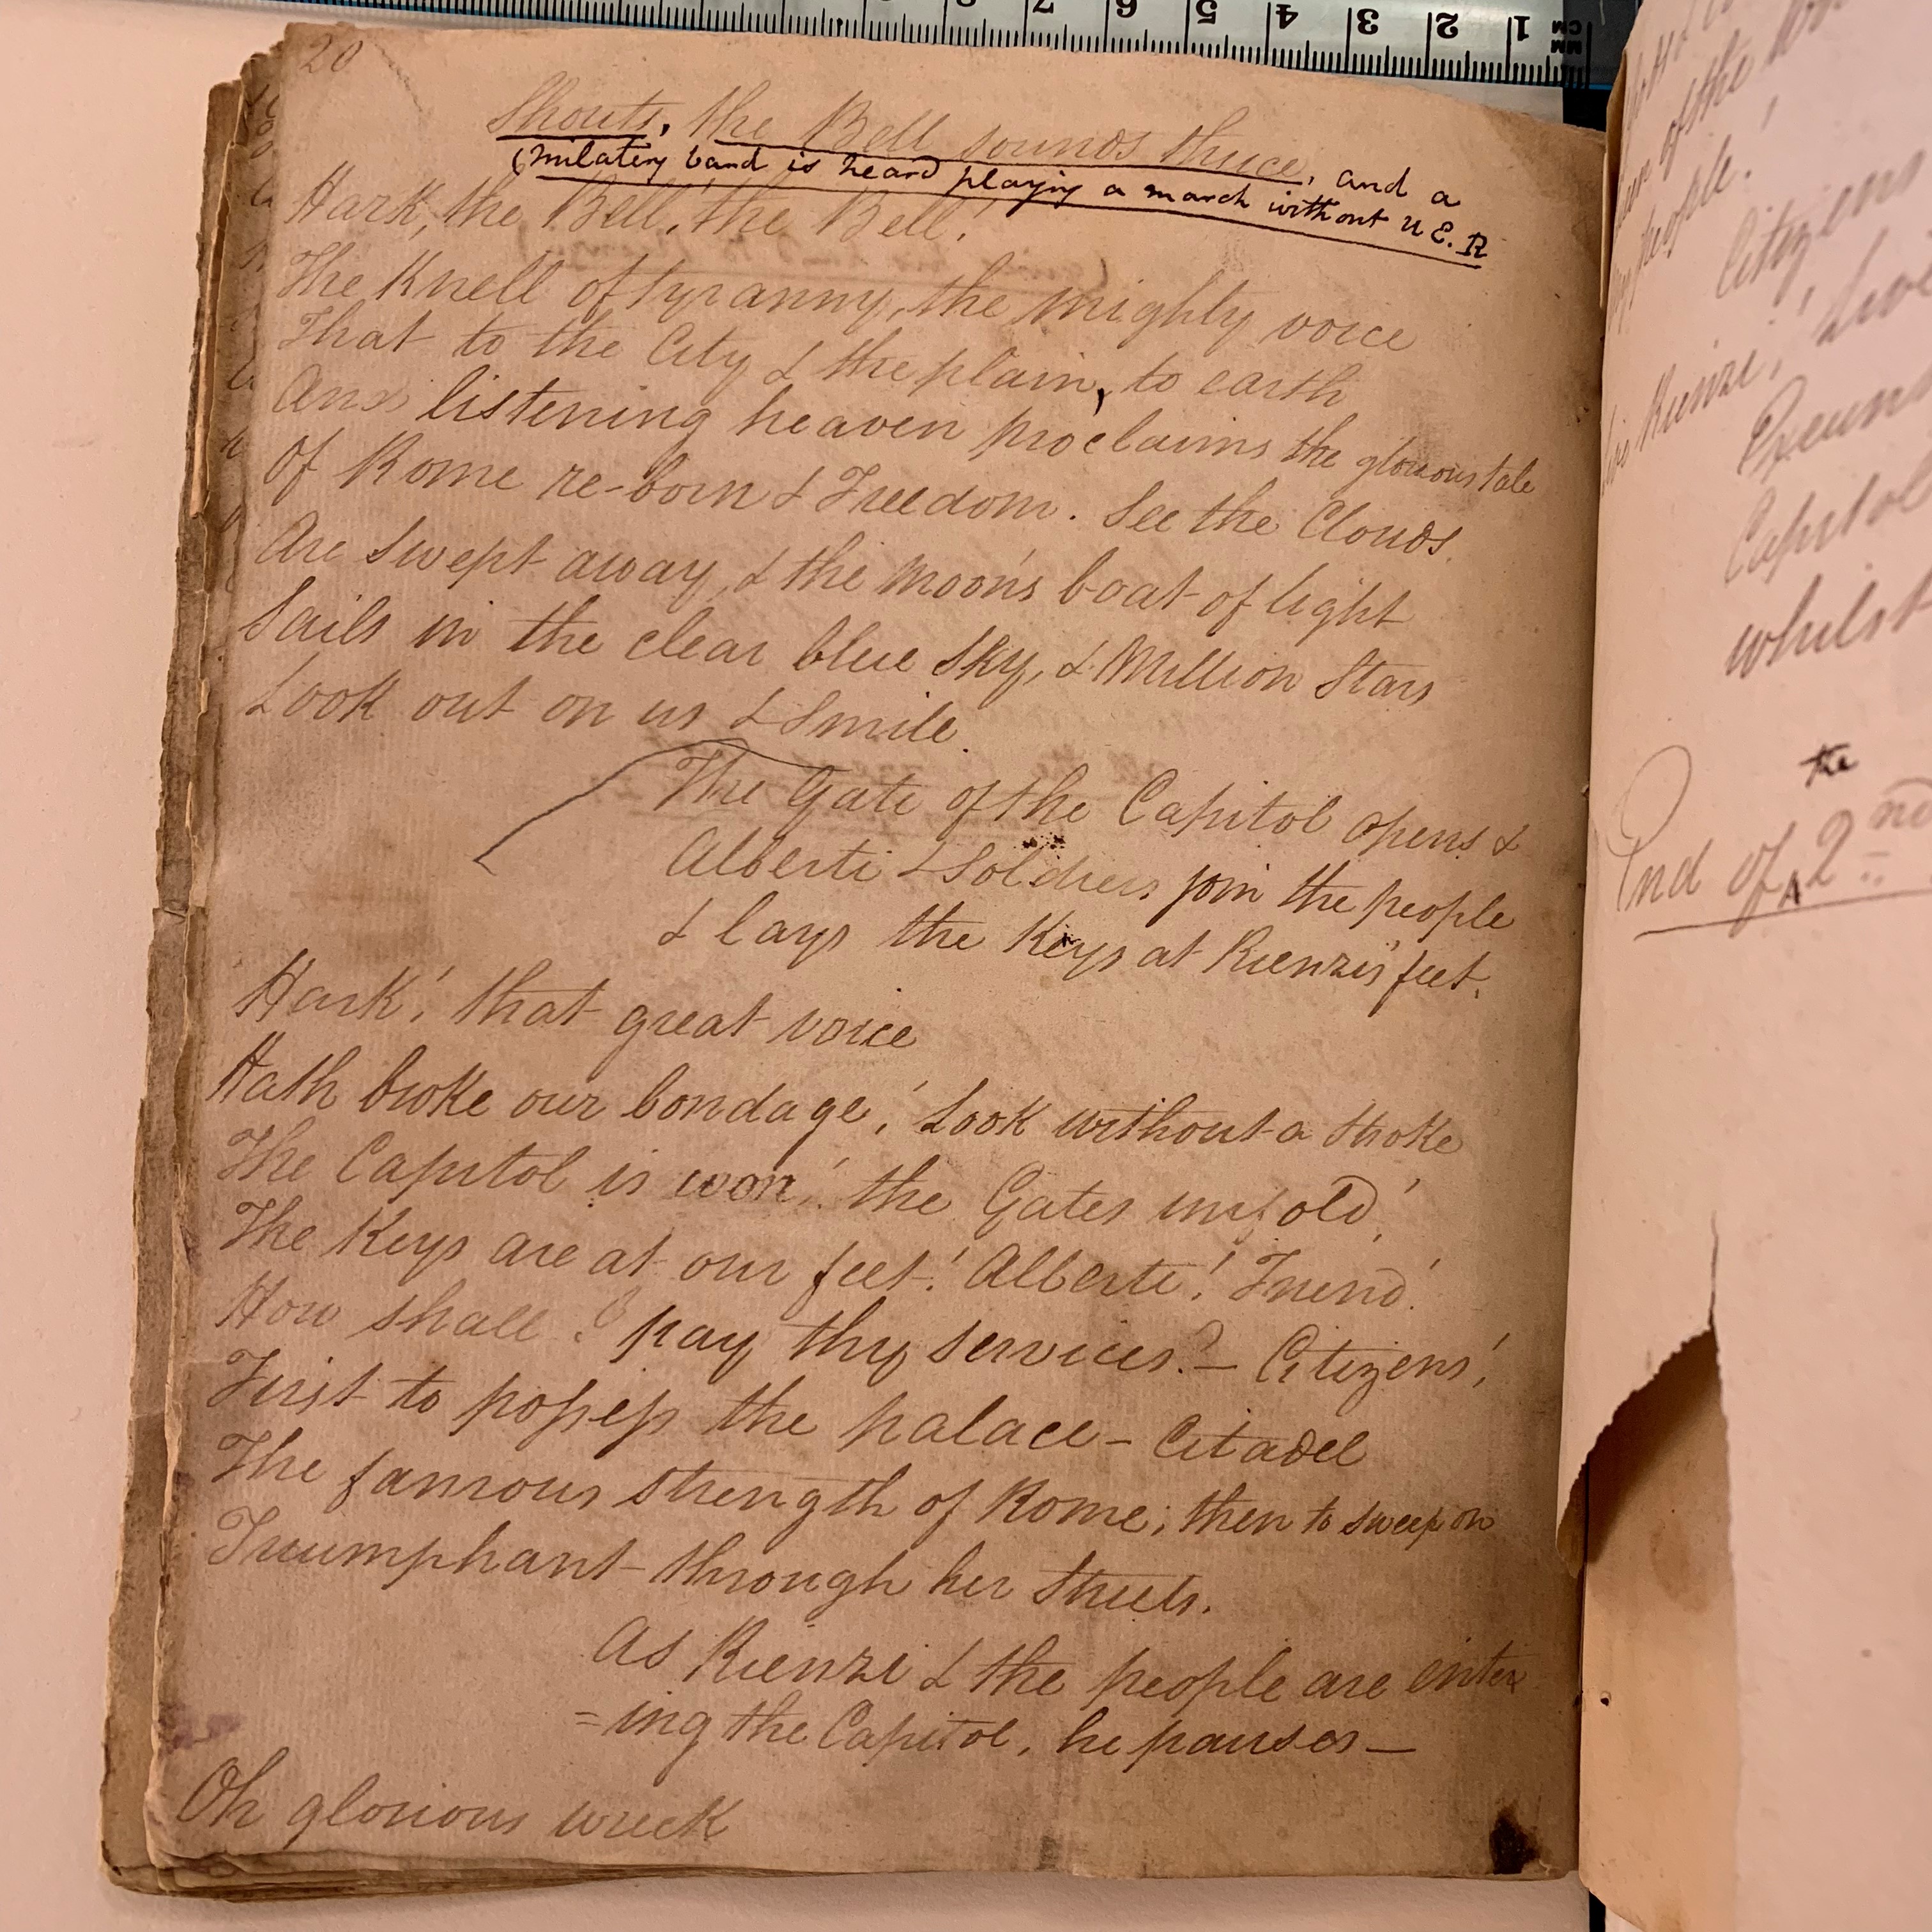 20
Shouts, the Bell sounds thrice, and a
(milatery band is heard playing a march without U. E. R
Hark, the Bell, the Bell!
The Knell of tyranny, the mighty voice
That to the City & the plain, to earth
And listening heaven proclaims the glorious tale
Of Rome re-born & Freedom. See the Clouds
Are swept away, & the moon's boat of light
Sails in the clear blue sky, & Million Stars
Look out on us & Smile.
The Gate of the Capitol opens &
Alberti & Soldiers join the people
& lays the Keys at Rienzi's feet.
Hark! that great voice
Hath broke our bondage! Look without a stroke
The Capitol is won! the Gates unfold!
The Keys are at our feet! Alberti! Friend!
How shall I pay thy services? — Citizens!
First to possess the palace - Citadel
The famous strength of Rome; then to sweep on
Triumphant through her streets.
As Rienzi & the people are enter
=ing the Capitol, he pauses —
Oh glorious wreck
of the
people!
Citizens
Rienzi!
Exeunt
Capitol
whilst
the
End of 2nd
1 2 3 4 5 6 7 8
CM
MM